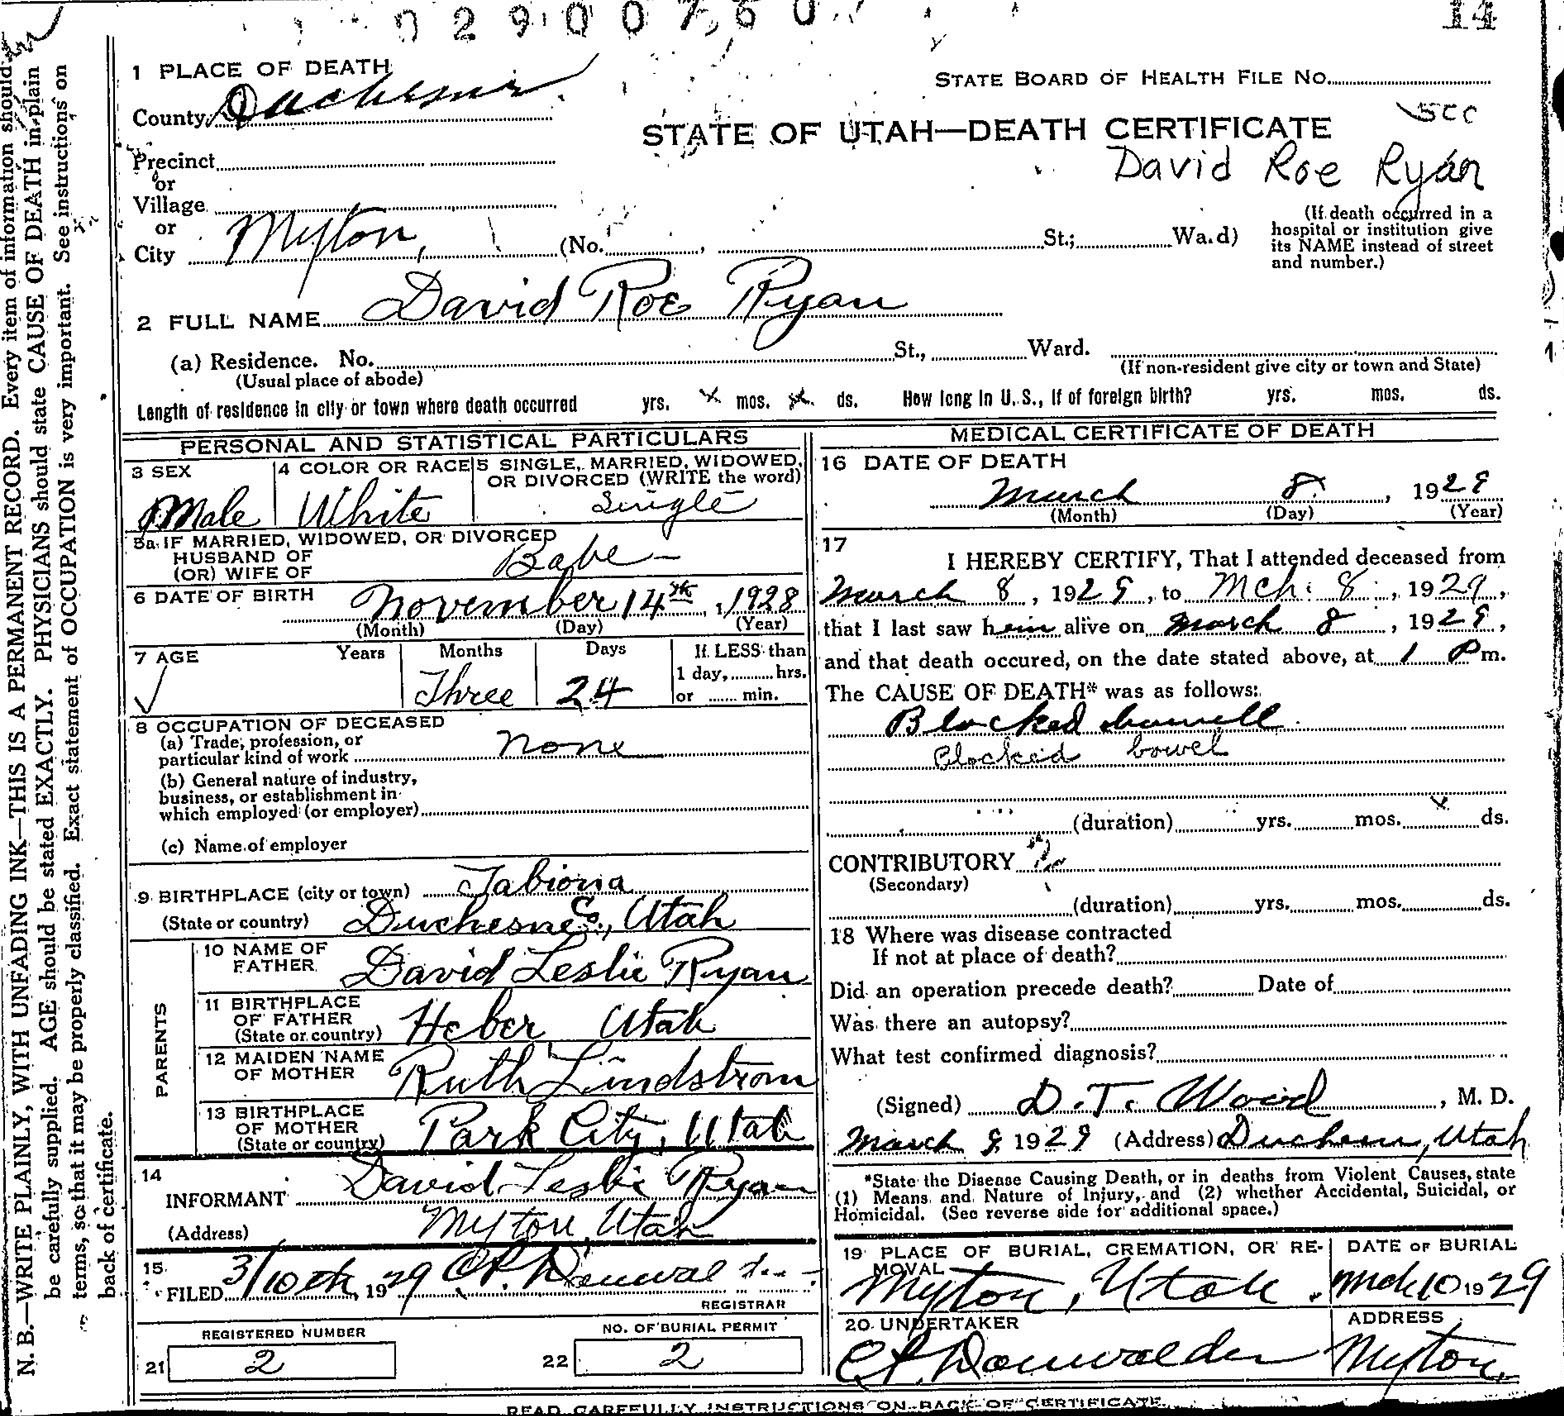 02900760
14
1 PLACE OF DEATH
County Duchesne
STATE BOARD OF HEALTH FILE No.
STATE OF UTAH—DEATH CERTIFICATE
David Roe Ryan
Precinct
or
Village
or
City Myton, (No. , St.; Wa.d)
(If death occurred in a
hospital or institution give
its NAME instead of street
and number.)
2 FULL NAME David Roe Ryan
(a) Residence. No. St., Ward.
(Usual place of abode) (If non-resident give city or town and State)
Length of residence in city or town where death occurred yrs. x mos. ds. How long in U. S., if of foreign birth? yrs. mos. ds.
PERSONAL AND STATISTICAL PARTICULARS
3 SEX
Male
4 COLOR OR RACE
White
5 SINGLE, MARRIED, WIDOWED,
OR DIVORCED (WRITE the word)
Single
5a IF MARRIED, WIDOWED, OR DIVORCED
HUSBAND OF
(OR) WIFE OF
Babe —
6 DATE OF BIRTH November 14th, 1928
(Month) (Day) (Year)
7 AGE Years Months Days If LESS than
1 day, hrs.
or min.
Three 24
8 OCCUPATION OF DECEASED
(a) Trade, profession, or
particular kind of work none
(b) General nature of industry,
business, or establishment in
which employed (or employer)
(c) Name of employer
9 BIRTHPLACE (city or town) Tabiona
(State or country) Duchesne Co., Utah
PARENTS
10 NAME OF
FATHER David Leslie Ryan
11 BIRTHPLACE
OF FATHER
(State or country) Heber Utah
12 MAIDEN NAME
OF MOTHER Ruth Lindstrom
13 BIRTHPLACE
OF MOTHER
(State or country) Park City, Utah
14
INFORMANT David Leslie Ryan
(Address) Myton, Utah
15
FILED 3/10th, 1929
REGISTRAR
REGISTERED NUMBER
21 2
NO. OF BURIAL PERMIT
22 2
MEDICAL CERTIFICATE OF DEATH
16 DATE OF DEATH
March 8, 1929
(Month) (Day) (Year)
17
I HEREBY CERTIFY, That I attended deceased from
March 8, 1929, to Mch. 8, 1929,
that I last saw him alive on March 8, 1929,
and that death occured, on the date stated above, at 1 P m.
The CAUSE OF DEATH* was as follows:
Blocked bowell
Blocked bowel
(duration) yrs. mos. x ds.
CONTRIBUTORY
(Secondary)
(duration) yrs. mos. ds.
18 Where was disease contracted
If not at place of death?
Did an operation precede death? Date of
Was there an autopsy?
What test confirmed diagnosis?
(Signed) D. T. Wood, M. D.
March 9 1929 (Address) Duchesne, Utah
*State the Disease Causing Death, or in deaths from Violent Causes, state
(1) Means and Nature of Injury, and (2) whether Accidental, Suicidal, or
Homicidal. (See reverse side for additional space.)
19 PLACE OF BURIAL, CREMATION, OR RE-
MOVAL
Myton, Utah.
DATE OF BURIAL
Mch 10 1929
20 UNDERTAKER
ADDRESS
Myton,
READ CAREFULLY INSTRUCTIONS ON BACK OF CERTIFICATE.
N. B.—WRITE PLAINLY, WITH UNFADING INK—THIS IS A PERMANENT RECORD. Every item of information should
be carefully supplied. AGE should be stated EXACTLY. PHYSICIANS should state CAUSE OF DEATH in plain
terms, so that it may be properly classified. Exact statement of OCCUPATION is very important. See instructions on
back of certificate.